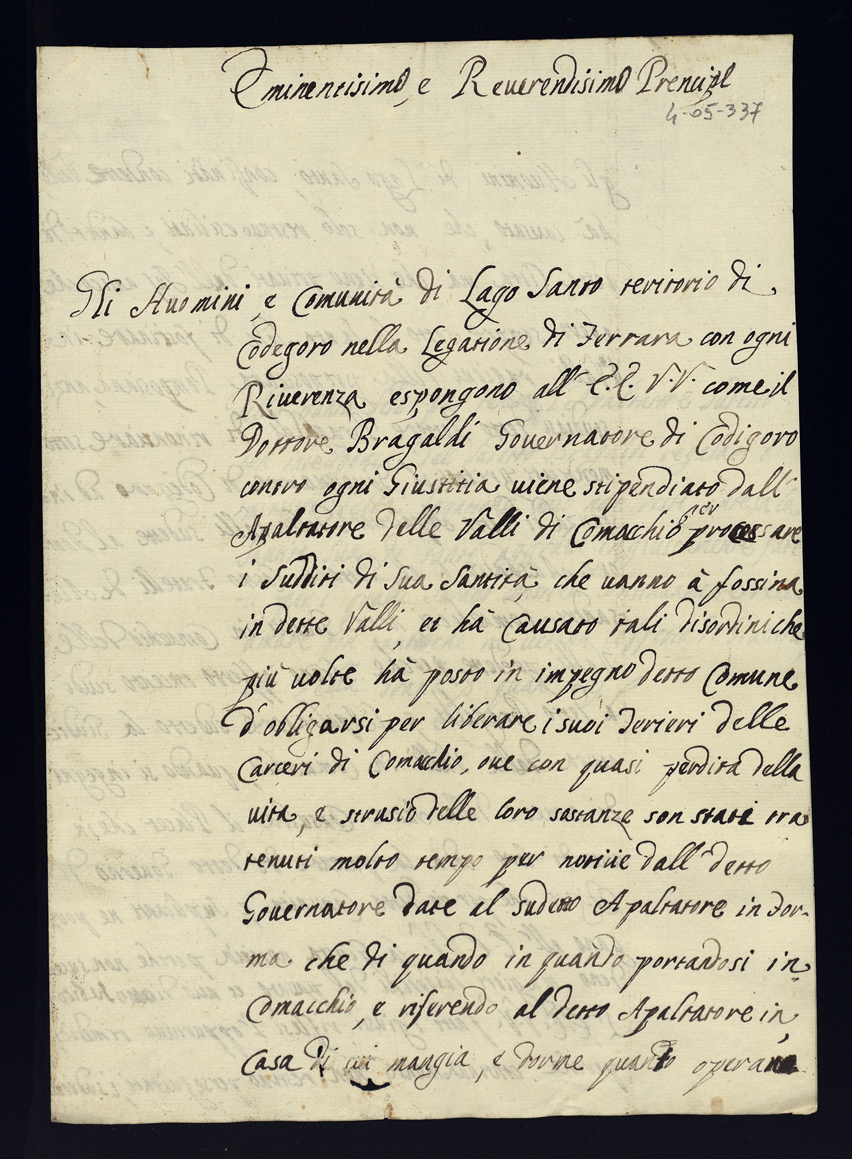 Eminentisimo, e Reverendisimo Prencipe
4-05-337
Gli Huomini, e Comunità di Lago Santo teritorio di
Codegoro nella Legatione di Ferrara con ogni
Riuerenza espongono all' E.E. V.V. come il
Dottore Bragaldi Gouernatore di Codigoro
contro ogni Giustitia uiene stipendiato dall'
Apaltatore delle Valli di Comacchio per processare
i Sudditi di Sua Santità, che uanno à fossina
in dette Valli, et hà causato tali disordini che
più uolte hà posto in impegno detto Comune
d'obligarsi per liberare i suoi Terieri delle
Carceri di Comachio, oue con quasi perdita della
uita, e strusio delle loro sostanze son stati tra
tenuti molto tempo per notitie dall' detto
Gouernatore date al sudetto Apaltatore in For-
ma che di quando in quando portandosi in
Comacchio, e riferendo al detto Apaltatore in
Casa di cui mangia, e dorme quanto opera